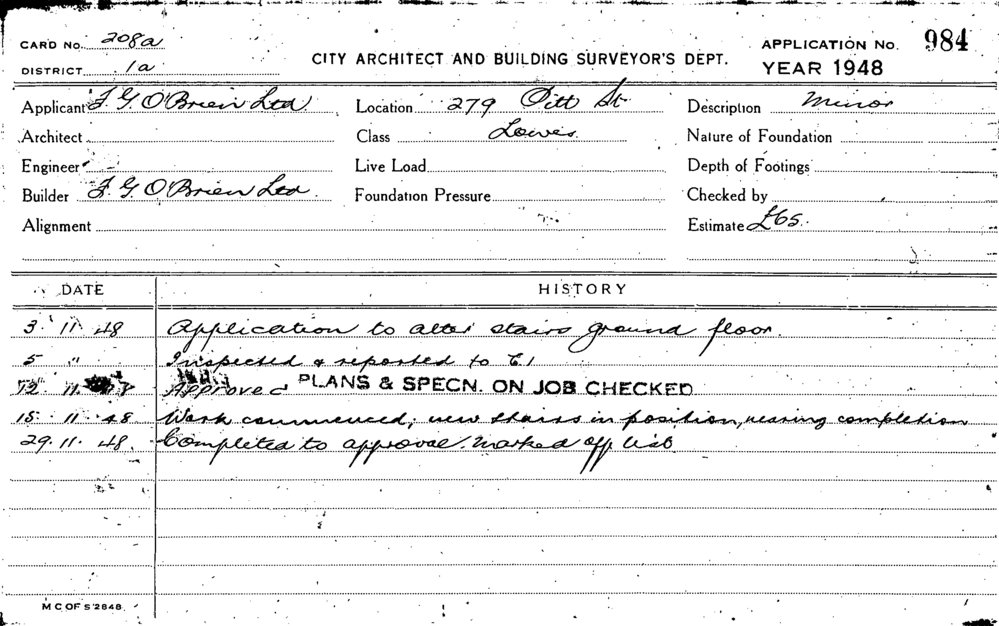 CARD No. 208a
DISTRICT 1a
CITY ARCHITECT AND BUILDING SURVEYOR'S DEPT.
APPLICATION No. 984
YEAR 1948
Applicant F. G. O'Brien Ltd Location 279 Pitt St Description Minor
Architect Class Lowes Nature of Foundation
Engineer Live Load Depth of Footings
Builder F. G. O'Brien Ltd. Foundation Pressure Checked by
Alignment Estimate £65.
DATE HISTORY
3 11 48 Application to alter stairs ground floor.
5 " Inspected & reported to
12 11 Approved PLANS & SPECN. ON JOB CHECKED
15 11 48 Work commenced; new stairs in position, nearing completion
29. 11. 48. Completed to approval. Marked off list.
M C OF S 2848